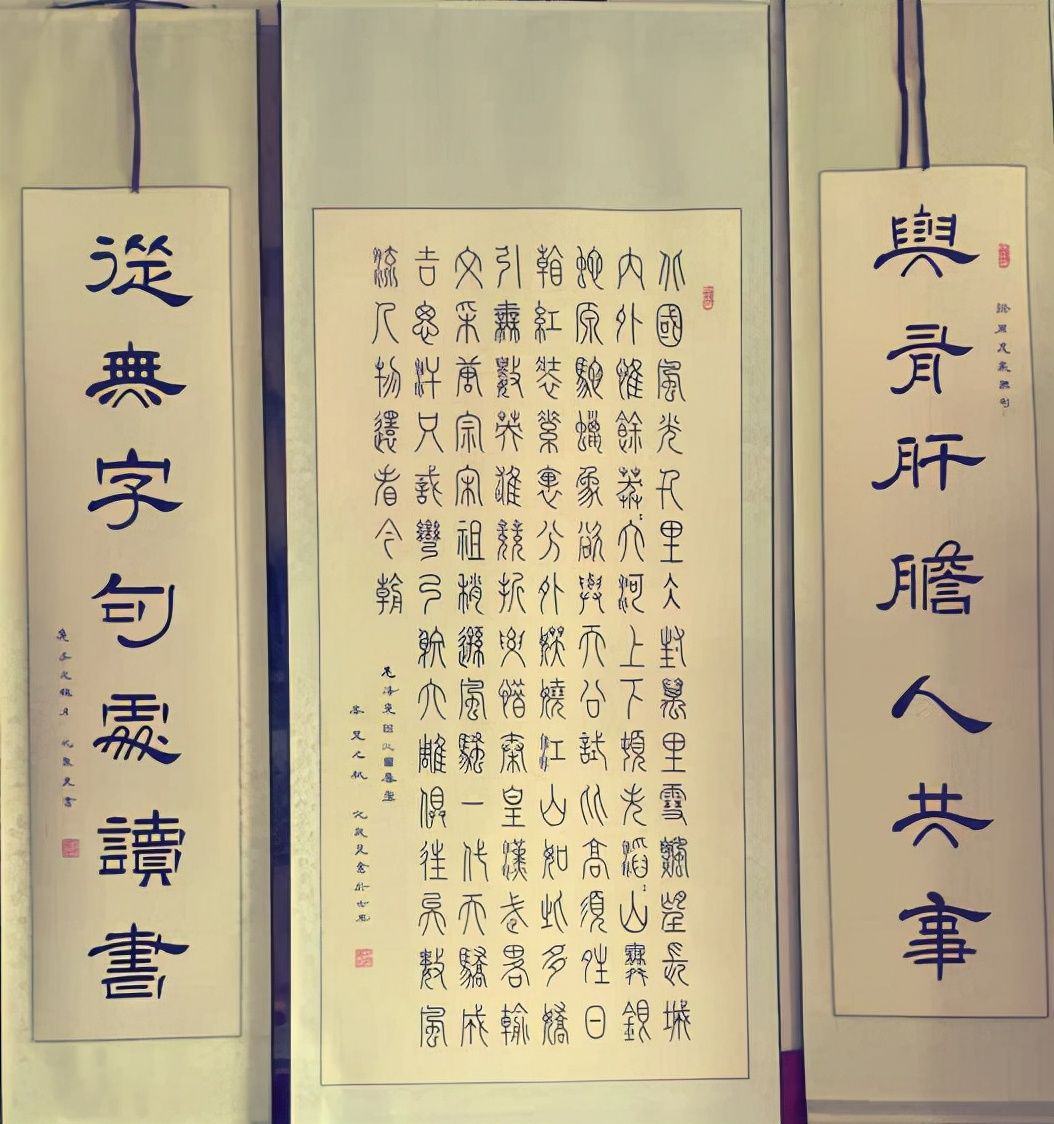 與有肝膽人共事
北國風光千里冰封萬里雪飄望長城
內外惟餘莽〻大河上下頓失滔〻山舞銀
蛇原馳蠟象欲與天公試比高須晴日
翰紅裝素裹分外妖嬈江山如此多嬌
引無數英雄競折腰惜秦皇漢武略輸
文采唐宗宋祖稍遜風騷一代天驕成
吉思汗只識彎弓射大雕俱往矣數風
流人物還看今朝
從無字句處讀書